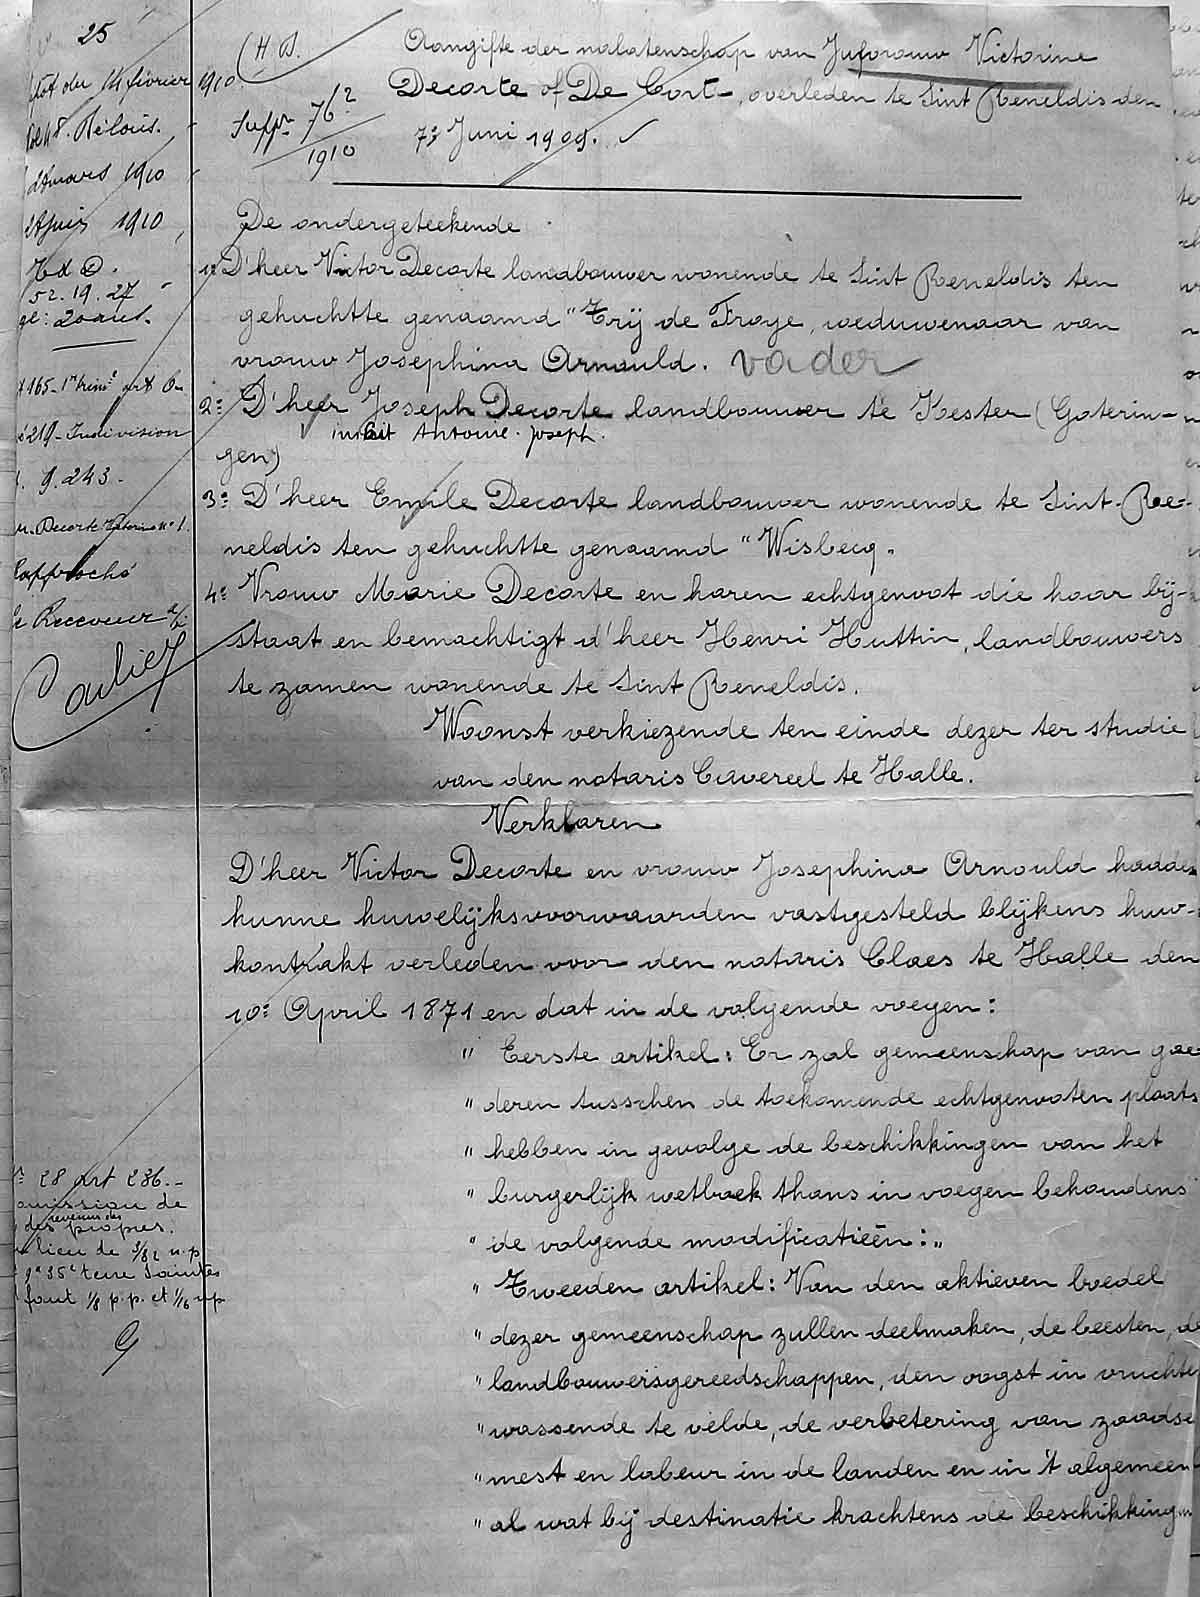 25
du 14 février 1910
mars 1910
1910
52. 19. 27
165 - 1er trim. art
219 - Indivision
9.243.
Decorte n° 1.
Rapproché
Le Receveur
(H. D.
Suppt 76 2
1910
Aangifte der nalatenschap van Juforouw Victorine
Decorte of De Cort, overleden te Sint Reneldis den
7: Juni 1909.
De ondergeteekende
1: D'heer Victor Decorte landbouwer wonende te Sint Reneldis ten
gehuchtte genaamd "Trij de Froye, weduwenaar van
vrouw Josephina Arnould. vader
2: D'heer Joseph Decorte landbouwer te Kester (Gaterin-
Antoine Joseph.
gen)
3: D'heer Emile Decorte landbouwer wonende te Sint-Re-
neldis ten gehuchtte genaamd "Wisbecq.
4: Vrouw Marie Decorte en haren echtgenoot die haar bij-
staat en bemachtigt d'heer Henri Huttin, landbouwers
te zamen wonende te Sint Reneldis.
Woonst verkiezende ten einde dezer ter studie
van den notaris Cavereel te Halle.
Verklaren
D'heer Victor Decorte en vrouw Josephina Arnould hadden
hunne huwelijksvoorwaarden vastgesteld blijkens huw-
kontrakt verleden voor den notaris Claes te Halle den
10: April 1871 en dat in de volgende voegen:
" Eerste artikel: Er zal gemeenschap van goe
" deren tusschen de toekomende echtgenooten plaats
" hebben in gevolge de beschikkingen van het
" burgerlijk wetboek thans in voegen behoudens
" de volgende modificatieën:"
" Tweeden artikel: Van den aktieven boedel
" dezer gemeenschap zullen deelmaken, de beesten, de
" landbouwersgereedschappen, den oogst in vruchte
" wassende te velde, de verbetering van zaadse
" mest en labeur in de landen en in 't algemeen
" al wat bij destinatie krachtens de beschikkingen
28 art 236.-
omission de
revenus des
des propres.
lieu de 3/82 n.p
35c terre Saintes
font 1/8 p.p. et 1/16 np